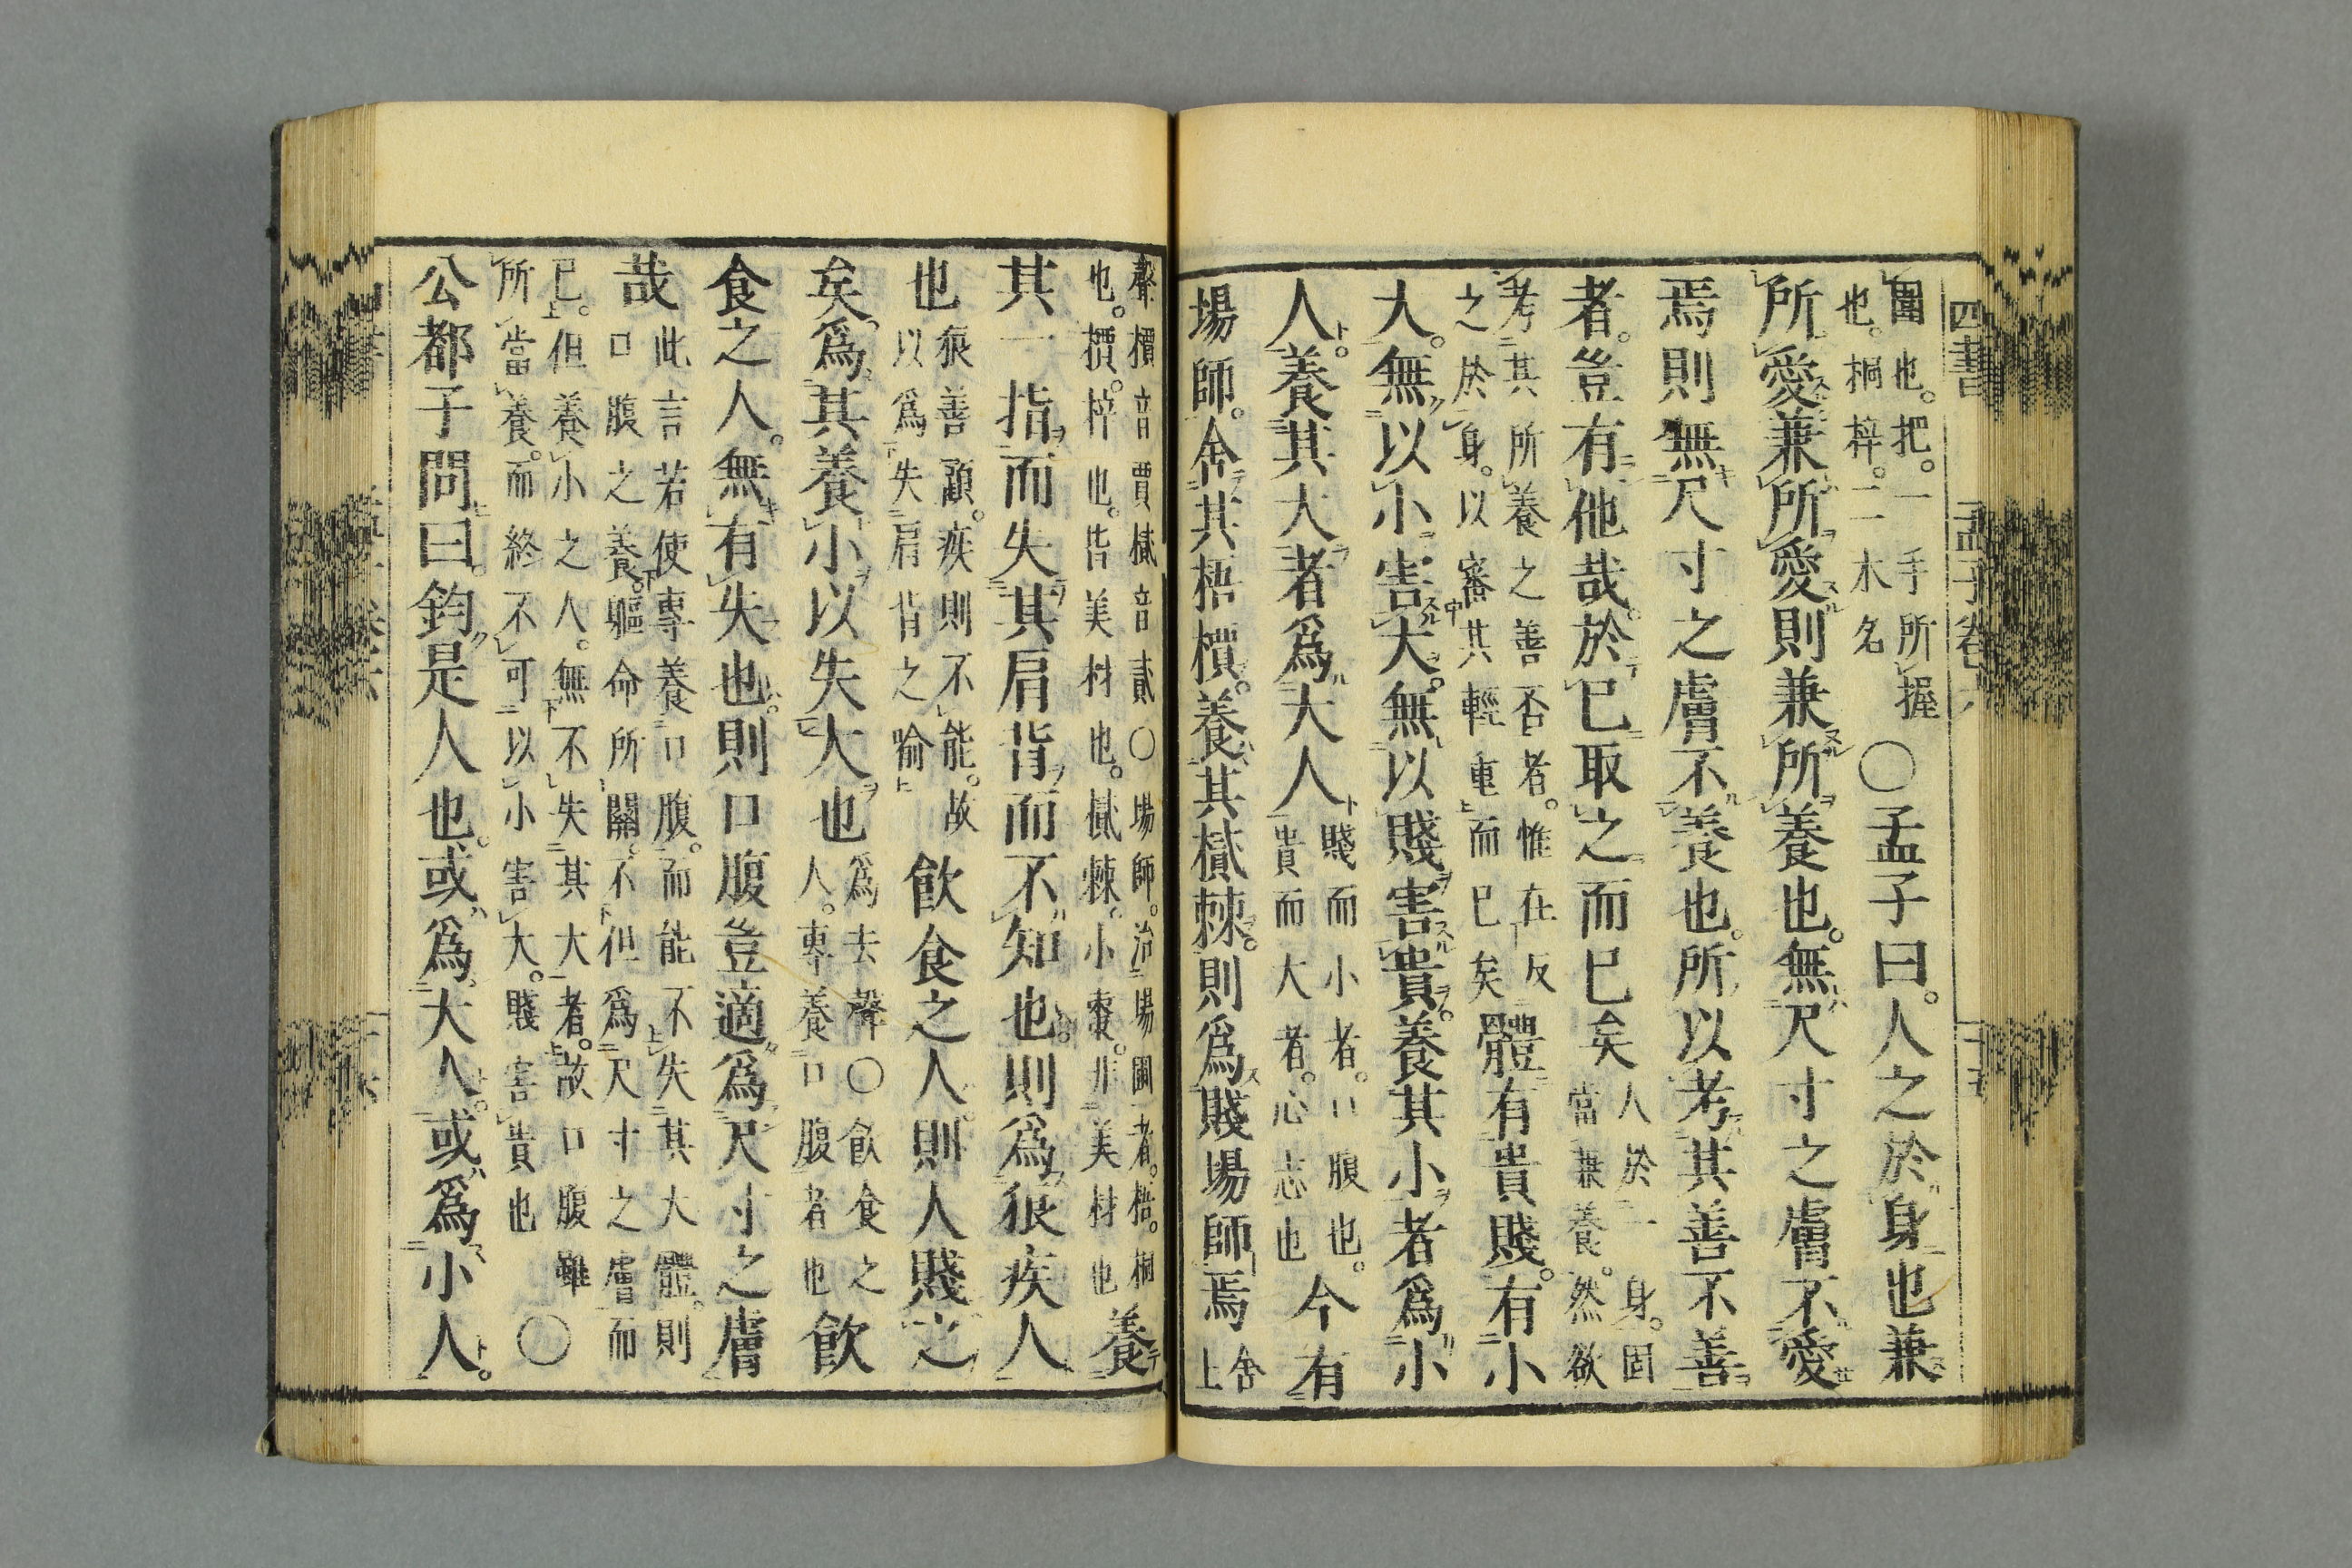 四書 孟子卷
圍也。把。一手所握也。桐梓。二木名○孟子曰。人之於身也兼
所愛兼所愛則兼所養也。無尺寸之膚不愛
焉則無尺寸之膚不養也。所以考其善不善
者。豈有他哉。於已取之而已矣人於一身。固當兼養。然欲
考其所養之善否者。惟在反之於身。以審其輕重而已矣體有貴賤。有小
大。無以小害大。無以賤害貴。養其小者爲小
人。養其大者爲大人賤而小者。口腹也。貴而大者。心志也今有
場師。舍其梧檟。養其樲棘。則爲賤場師焉舍上
聲檟音賈樲音貳○場師。治場圃者。梧。桐也。檟。梓也。皆美材也。樲棘。小棗。非美材也養
其一指而失其肩背而不知也。則爲狼疾人
也狼善顧。疾則不能。故以爲失肩背之喻飲食之人。則人賤之
矣爲其養小以失大也爲去聲○飲食之人。專養口腹者也飲
食之人。無有失也。則口腹豈適爲尺寸之膚
哉此言若使專養口腹。而能不失其大體。則口腹之養。軀命所關。不但爲尺寸之膚而
已。但養小之人。無不失其大者。故口腹雖所當養。而終不可以小害大。賤害貴也○
公都子問曰。鈞是人也。或爲大人。或爲小人。